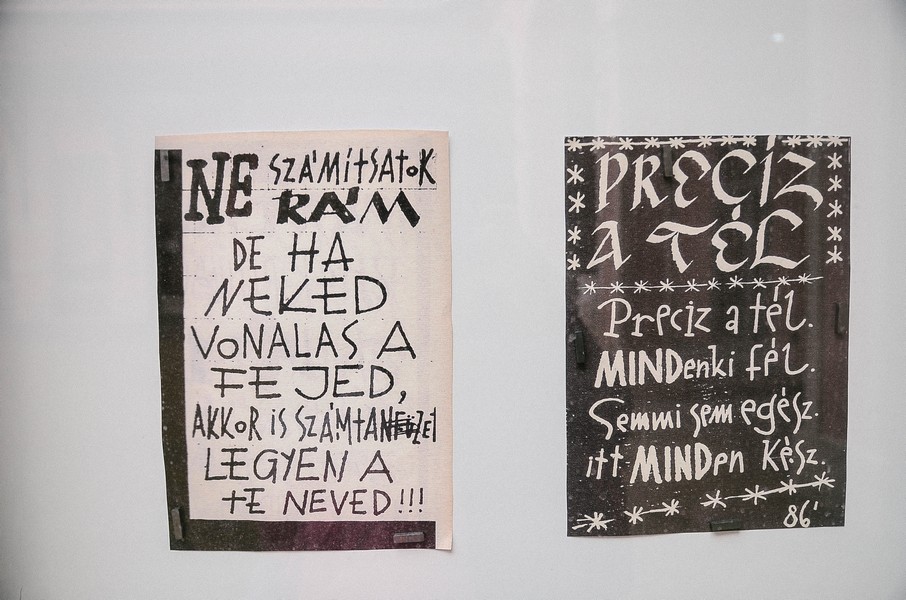 NE SZÁMÍTSATOK
RÁM
DE HA
NEKED
VONALAS A
FEJED,
AKKOR IS SZÁMTAN
LEGYEN A
TE NEVED!!!
PRECÍZ
A TÉL
Preciz a tél.
MINDenki fél.
Semmi sem egész.
itt MINDen kész.
86'